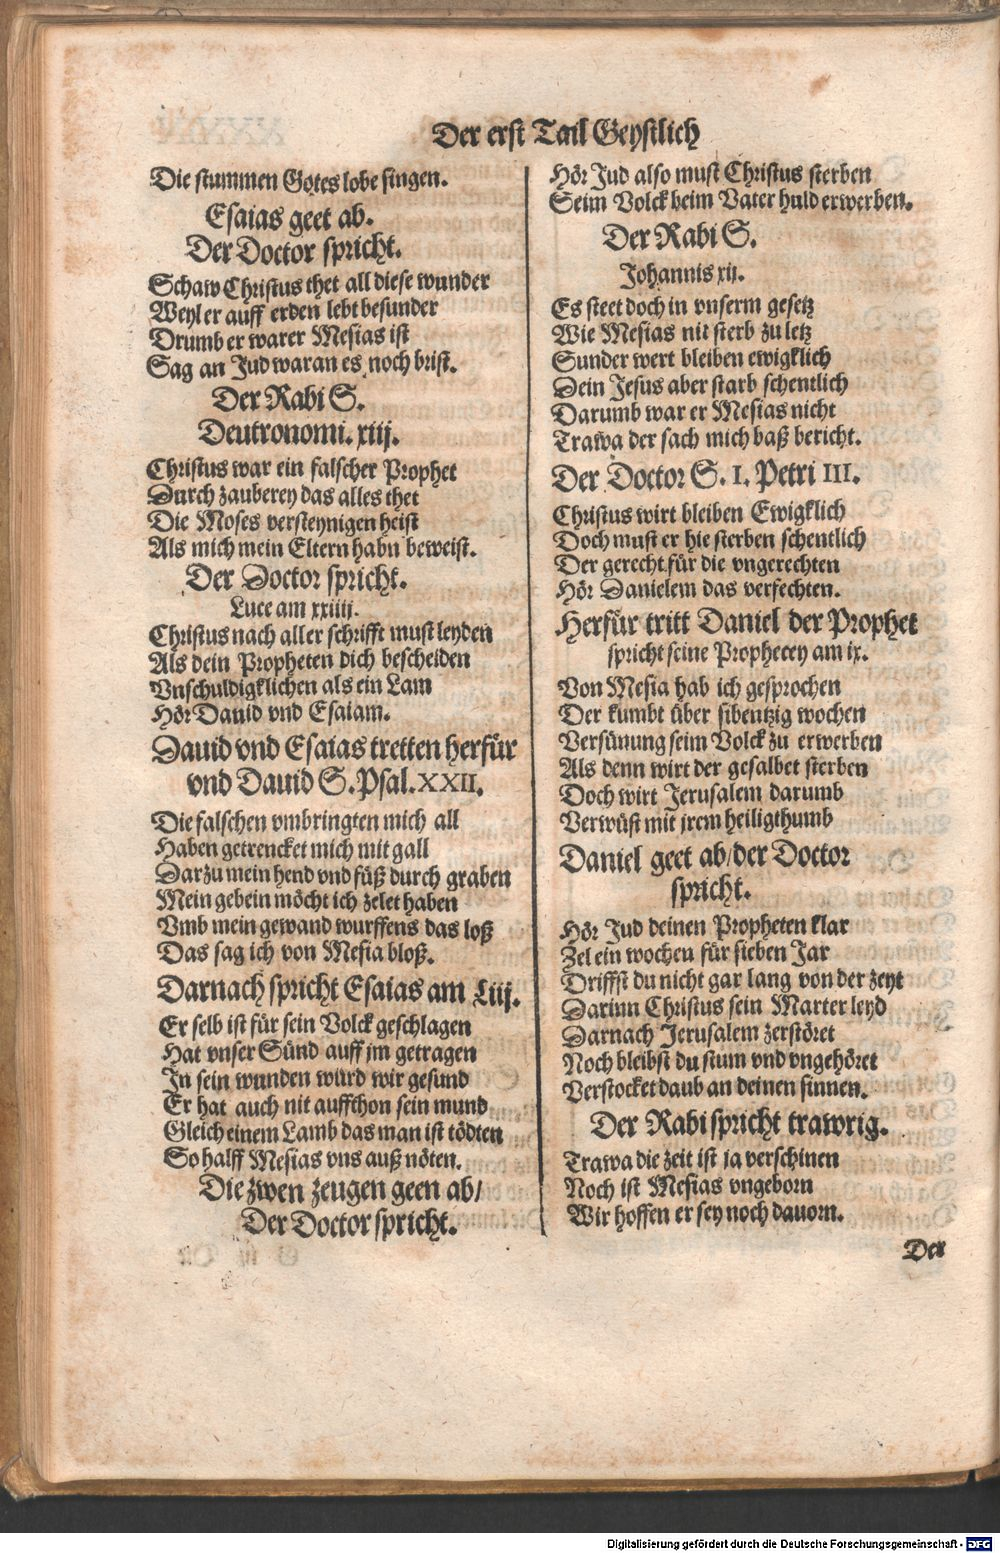 Der erst Tail Geystlich
Die stummen Gotes lobe singen.
Esaias geet ab.
Der Doctor spricht.
Schaw Christus thet all diese wunder
Weyl er auff erden lebt besunder
Drumb er warer Mesias ist
Sag an Jud waran es noch brist.
Der Rabi S.
Deutronomi. xiij.
Christus war ein falscher Prophet
Durch zauberey das alles thet
Die Moses versteynigen heist
Als mich mein Eltern habn beweist.
Der Doctor spricht.
Luce am xxiiij.
Christus nach aller schrifft must leyden
Als dein Propheten dich bescheiden
Vnschuldigklichen als ein Lam
Hör Dauid vnd Esaiam.
Dauid vnd Esaias tretten herfür
vnd Dauid S. Psal. XXII.
Die falschen vmbringten mich all
Haben getrencket mich mit gall
Darzu mein hend vnd füß durch graben
Mein gebein möcht ich zelet haben
Vmb mein gewand wurffens das loß
Das sag ich von Mesia bloß.
Darnach spricht Esaias am Liij.
Er selb ist für sein Volck geschlagen
Hat vnser Sünd auff jm getragen
In sein wunden würd wir gesund
Er hat auch nit auffthon sein mund
Gleich einem Lamb das man ist tödten
So halff Mesias vns auß nöten.
Die zwen zeugen geen ab/
Der Doctor spricht.
Hör Jud also must Christus sterben
Seim Volck beim Vater huld erwerben.
Der Rabi S.
Johannis xij.
Es steet doch in vnserm gesetz
Wie Mesias nit sterb zu letz
Sunder wert bleiben ewigklich
Dein Jesus aber starb schentlich
Darumb war er Mesias nicht
Trawa der sach mich baß bericht.
Der Doctor S. I. Petri III.
Christus wirt bleiben Ewigklich
Doch must er hie sterben schentlich
Der gerecht für die vngerechten
Hör Danielem das verfechten.
Herfür tritt Daniel der Prophet
spricht seine Prophecey am ix.
Von Mesia hab ich gesprochen
Der kumbt über sibentzig wochen
Versünung seim Volck zu erwerben
Als denn wirt der gesalbet sterben
Doch wirt Jerusalem darumb
Verwüst mit jrem heiligthumb
Daniel geet ab/ der Doctor
spricht.
Hör Jud deinen Propheten klar
Zel ein wochen für sieben Jar
Driffst du nicht gar lang von der zeyt
Darinn Christus sein Marter leyd
Darnach Jerusalem zerstöret
Noch bleibst du stum vnd vngehöret
Verstocket daub an deinen sinnen.
Der Rabi spricht trawrig.
Trawa die zeit ist ja verschinen
Noch ist Mesias vngeborn
Wir hoffen er sey noch dauorn.
Der
Digitalisierung gefördert durch die Deutsche Forschungsgemeinschaft - DFG